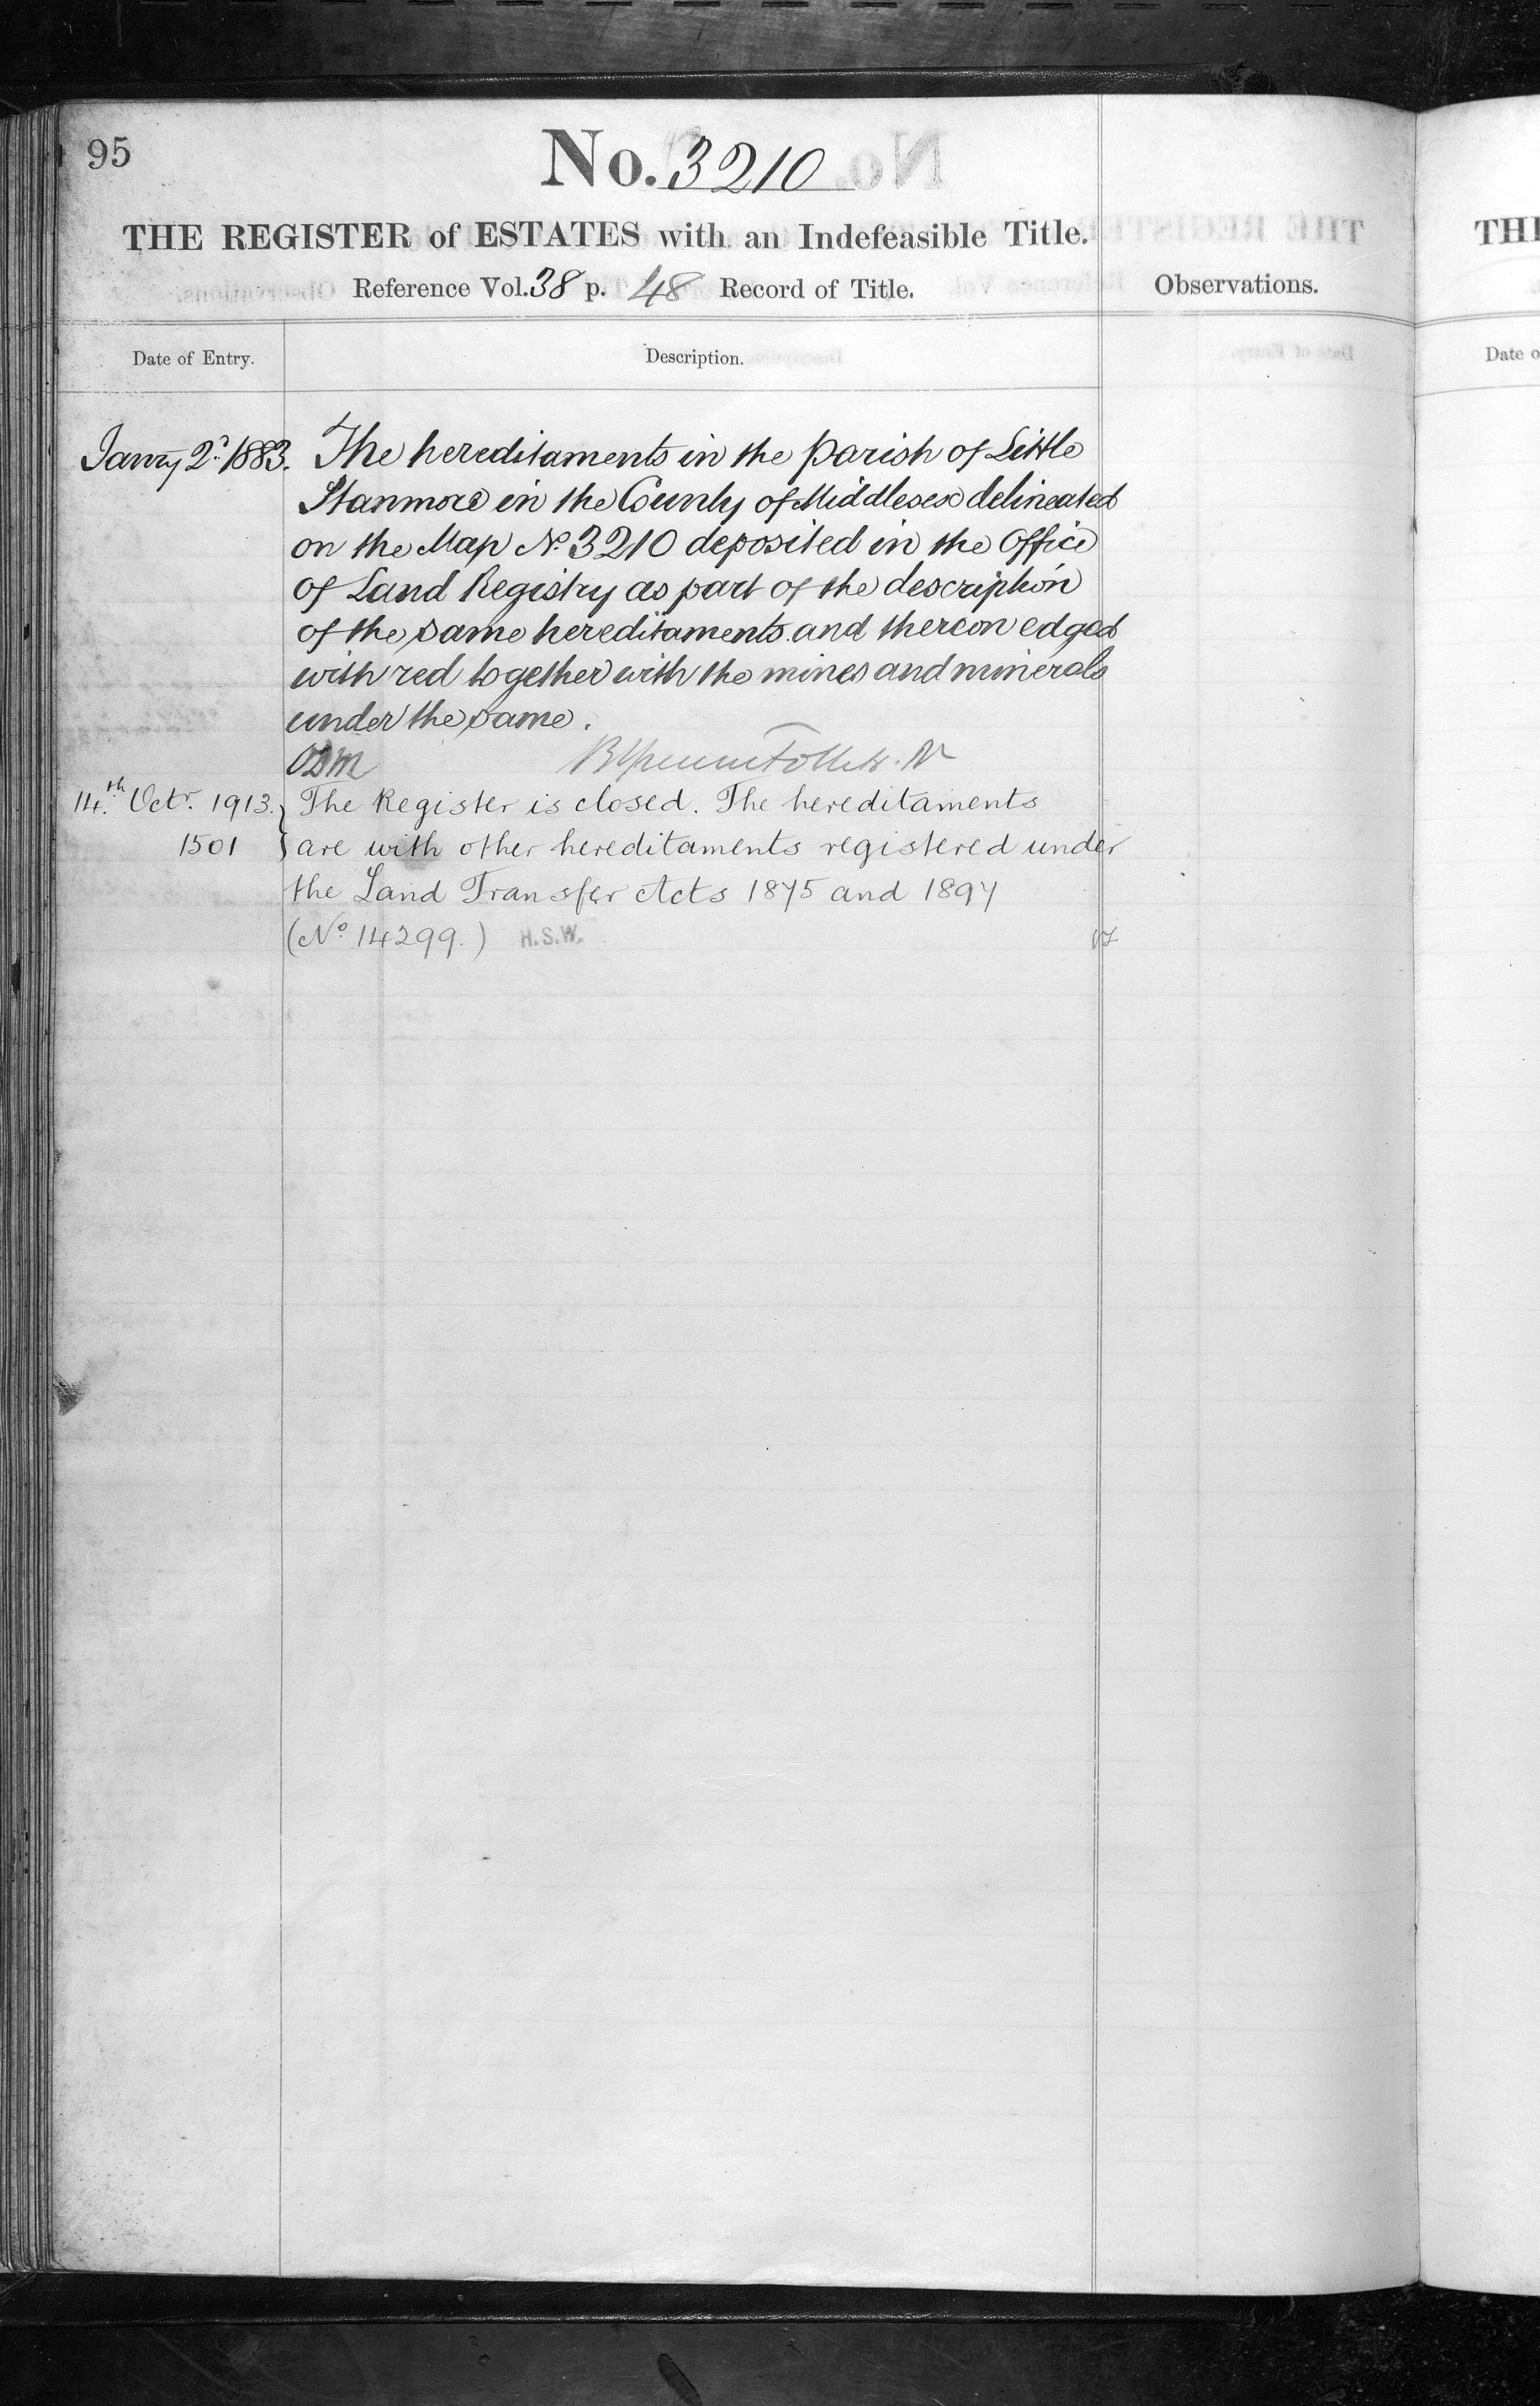 95
No. 3210
THE REGISTER of ESTATES with an Indefeasible Title.
Reference Vol. 38 p. 48 Record of Title.
Observations.
Date of Entry.
Description.
Janry 2d 1883.
The hereditaments in the Parish of Little
Stanmore in the County of Middlesex delineated
on the Map No. 3210 deposited in the Office
of Land Registry as part of the description
of the same hereditaments and thereon edged
with red together with the mines and minerals
under the same.
14th Octr. 1913.
1501
The Register is closed. The hereditaments
are with other hereditaments registered under
the Land Transfer Acts 1875 and 1897
(No 14299.) H.S.W.
TH
Date o